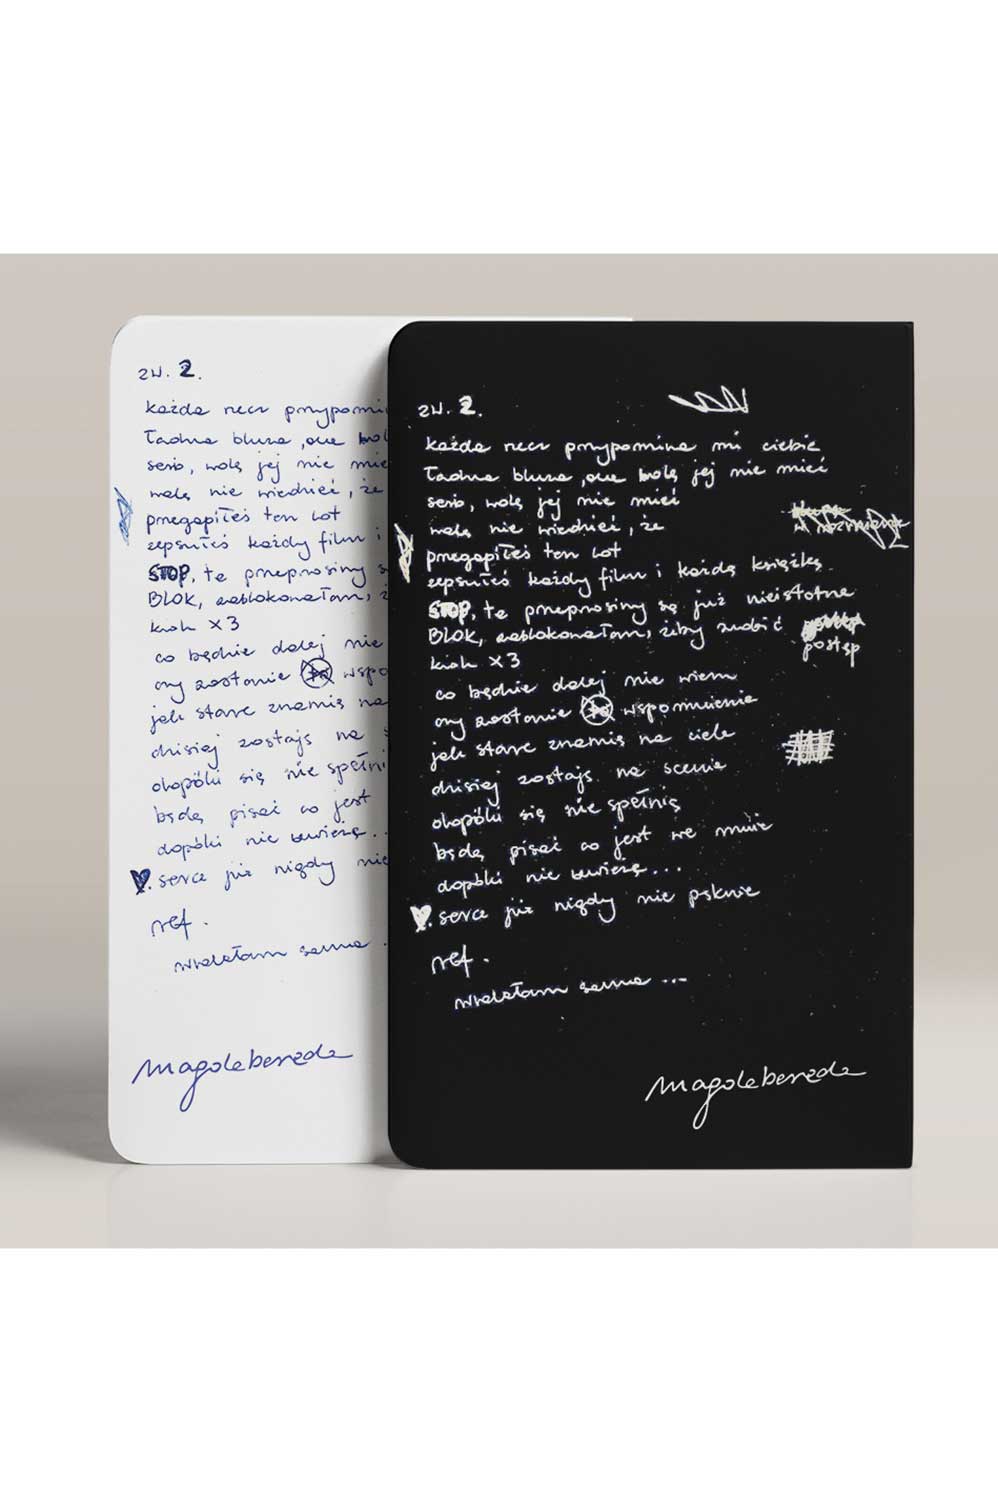 zw. 2.
każda rzecz przypomi
ładna bluza, ale wol
serio, wolę jej nie mie
wolę nie wiedzieć, że
przegapiłeś ten lot
zepsułeś każdy film i
STOP, te przeprosiny s
BLOK, zablokowałam, ż
krok x3
co będzie dalej nie
czy zostanie wspo
jak stare znamię na
dzisiaj zostaję na s
dopóki się nie spełni
będę pisać co jest
dopóki nie uwierzę..
serce już nigdy nie
ref.
sama .
magdabereda
zw. 2.
każda rzecz przypomina mi ciebie
ładna bluza, ale wolę jej nie mieć
serio, wolę jej nie mieć
wolę nie wiedzieć, że
przegapiłeś ten lot
zepsułeś każdy film i każdą książkę
STOP, te przeprosiny są już nieistotne
BLOK, zablokowałam, żeby zrobić
postęp
krok x3
co będzie dalej nie wiem
czy zostanie wspomnienie
jak stare znamię na ciele
dzisiaj zostaję na scenie
dopóki się nie spełnię
będę pisać co jest we mnie
dopóki nie uwierzę...
serce już nigdy nie pęknie
ref.
sama ...
magdabereda